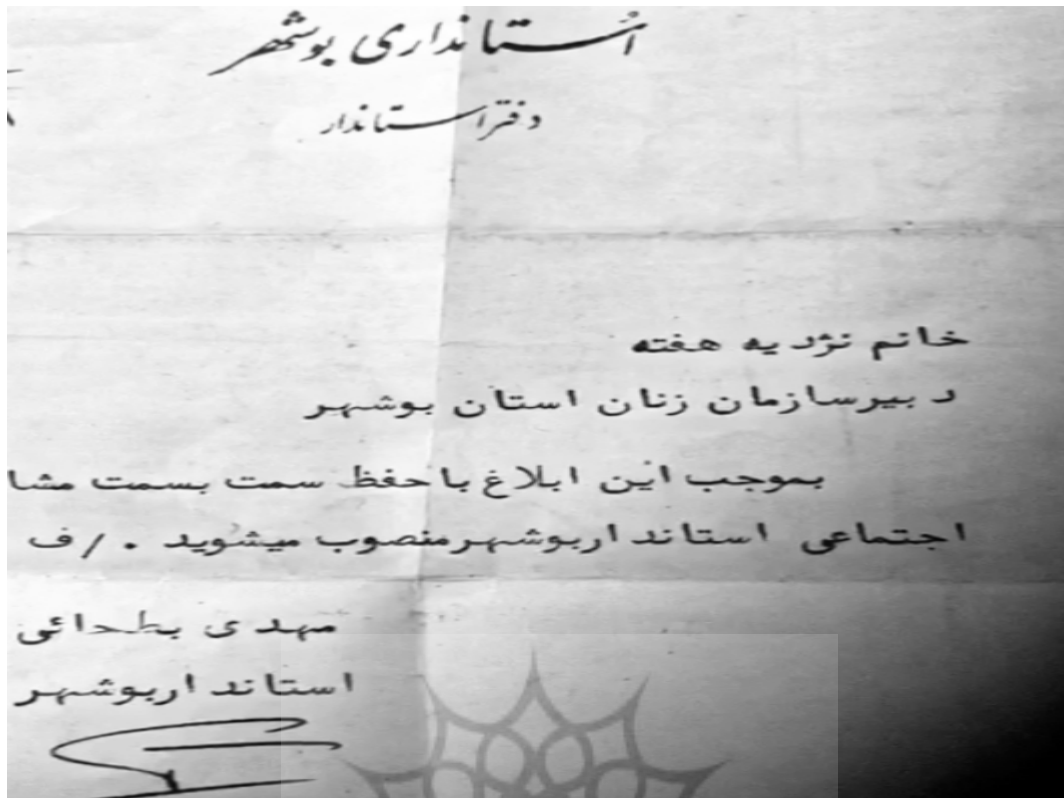 استانداری بوشهر
دفتر استاندار
خانم نژدیه هفته
دبیرسازمان زنان استان بوشهر
بموجب این ابلاغ با حفظ سمت بسمت مشا
اجتماعی استانداربوشهرمنصوب میشوید ./ف
مهدی بطحائی
استانداربوشهر